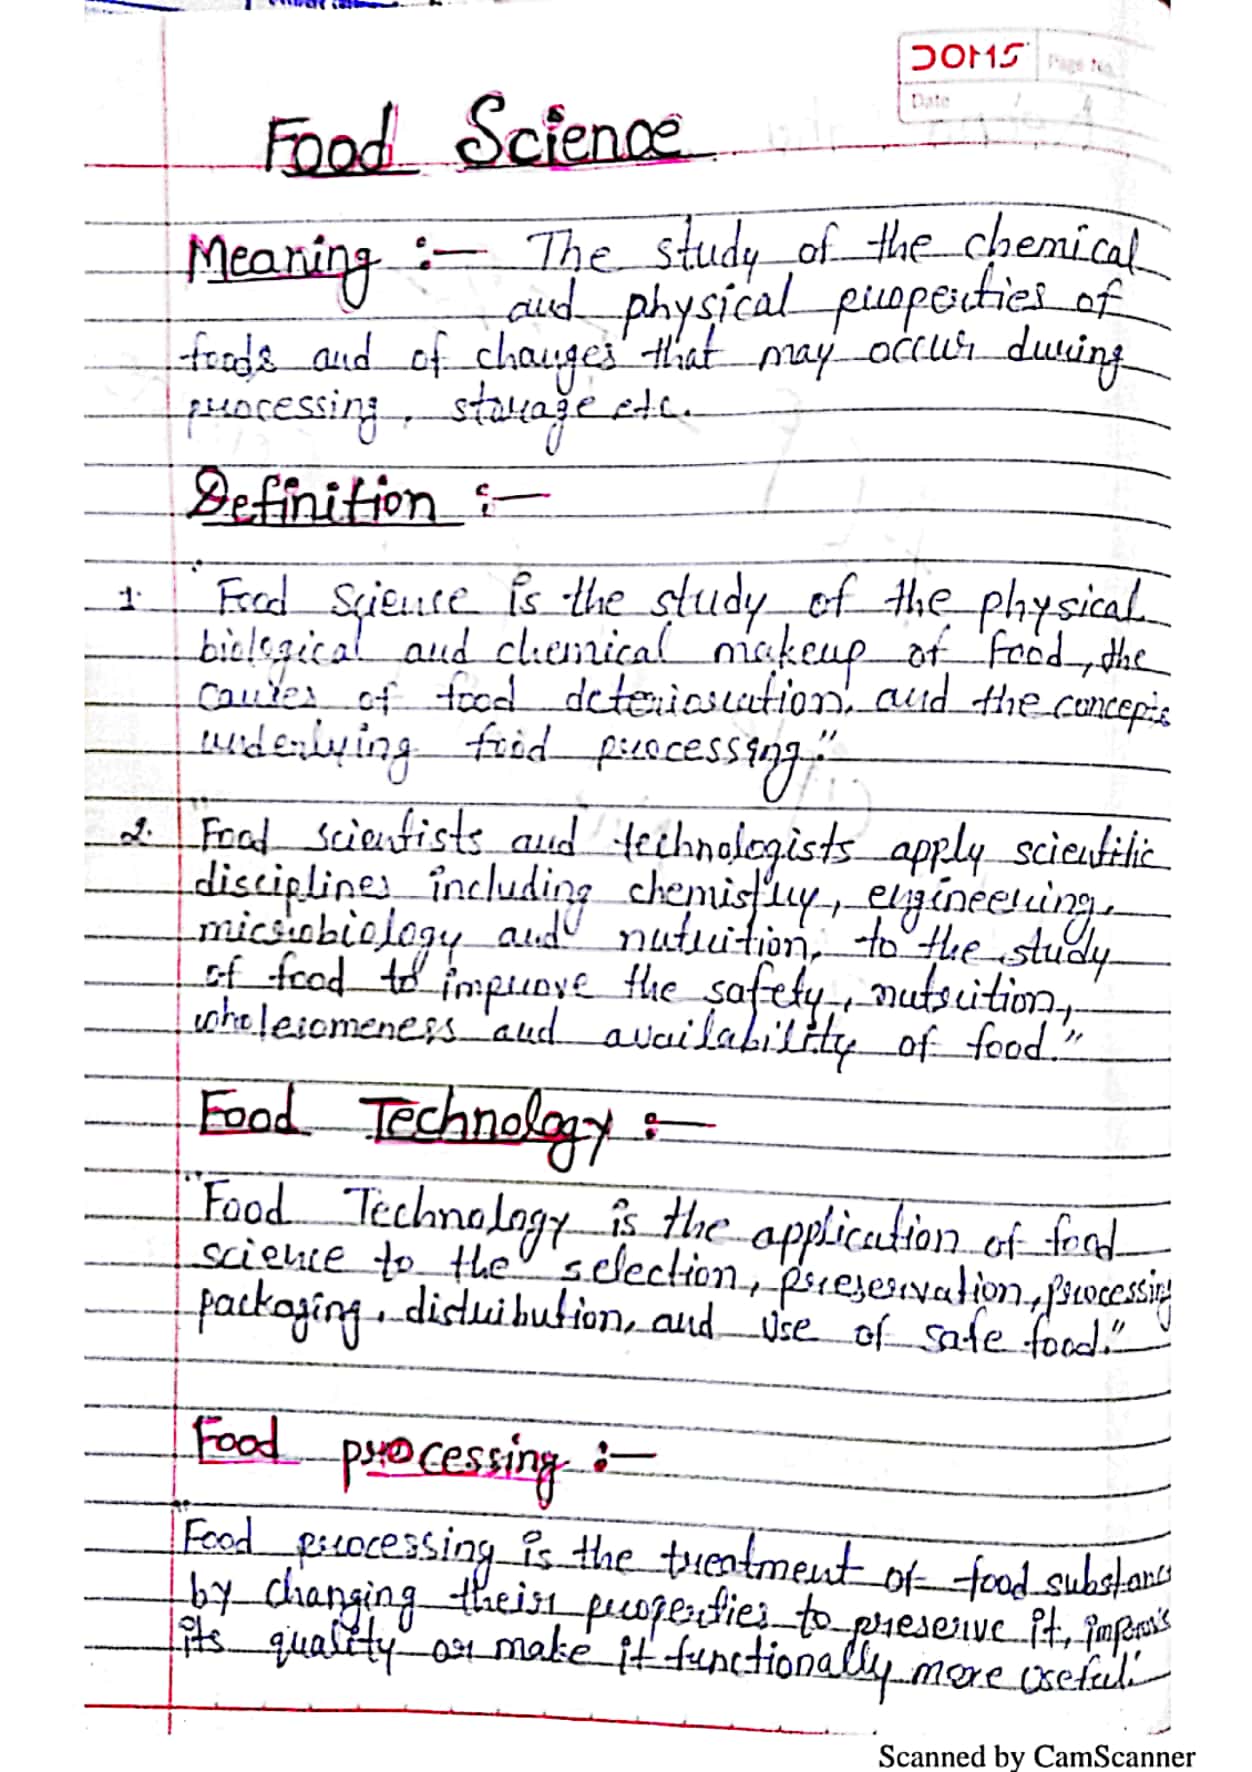 DOMS Page No.
Date / /
Food Science
Meaning :— The study of the chemical
and physical properties of
foods and of changes that may occur during
processing, storage etc.
Definition :—
1. "Food Science is the study of the physical
biological and chemical makeup of food, the
causes of food deterioration, and the concepts
underlying food processing."
2. "Food scientists and technologists apply scientific
disciplines including chemistry, engineering,
microbiology and nutrition, to the study
of food to improve the safety, nutrition,
wholesomeness and availability of food."
Food Technology :—
"Food Technology is the application of food
science to the selection, preservation, processing
packaging, distribution, and use of safe food."
Food processing :—
"Food processing is the treatment of food substanc
by changing their properties to preserve it,
its quality or make it functionally more useful."
Scanned by CamScanner